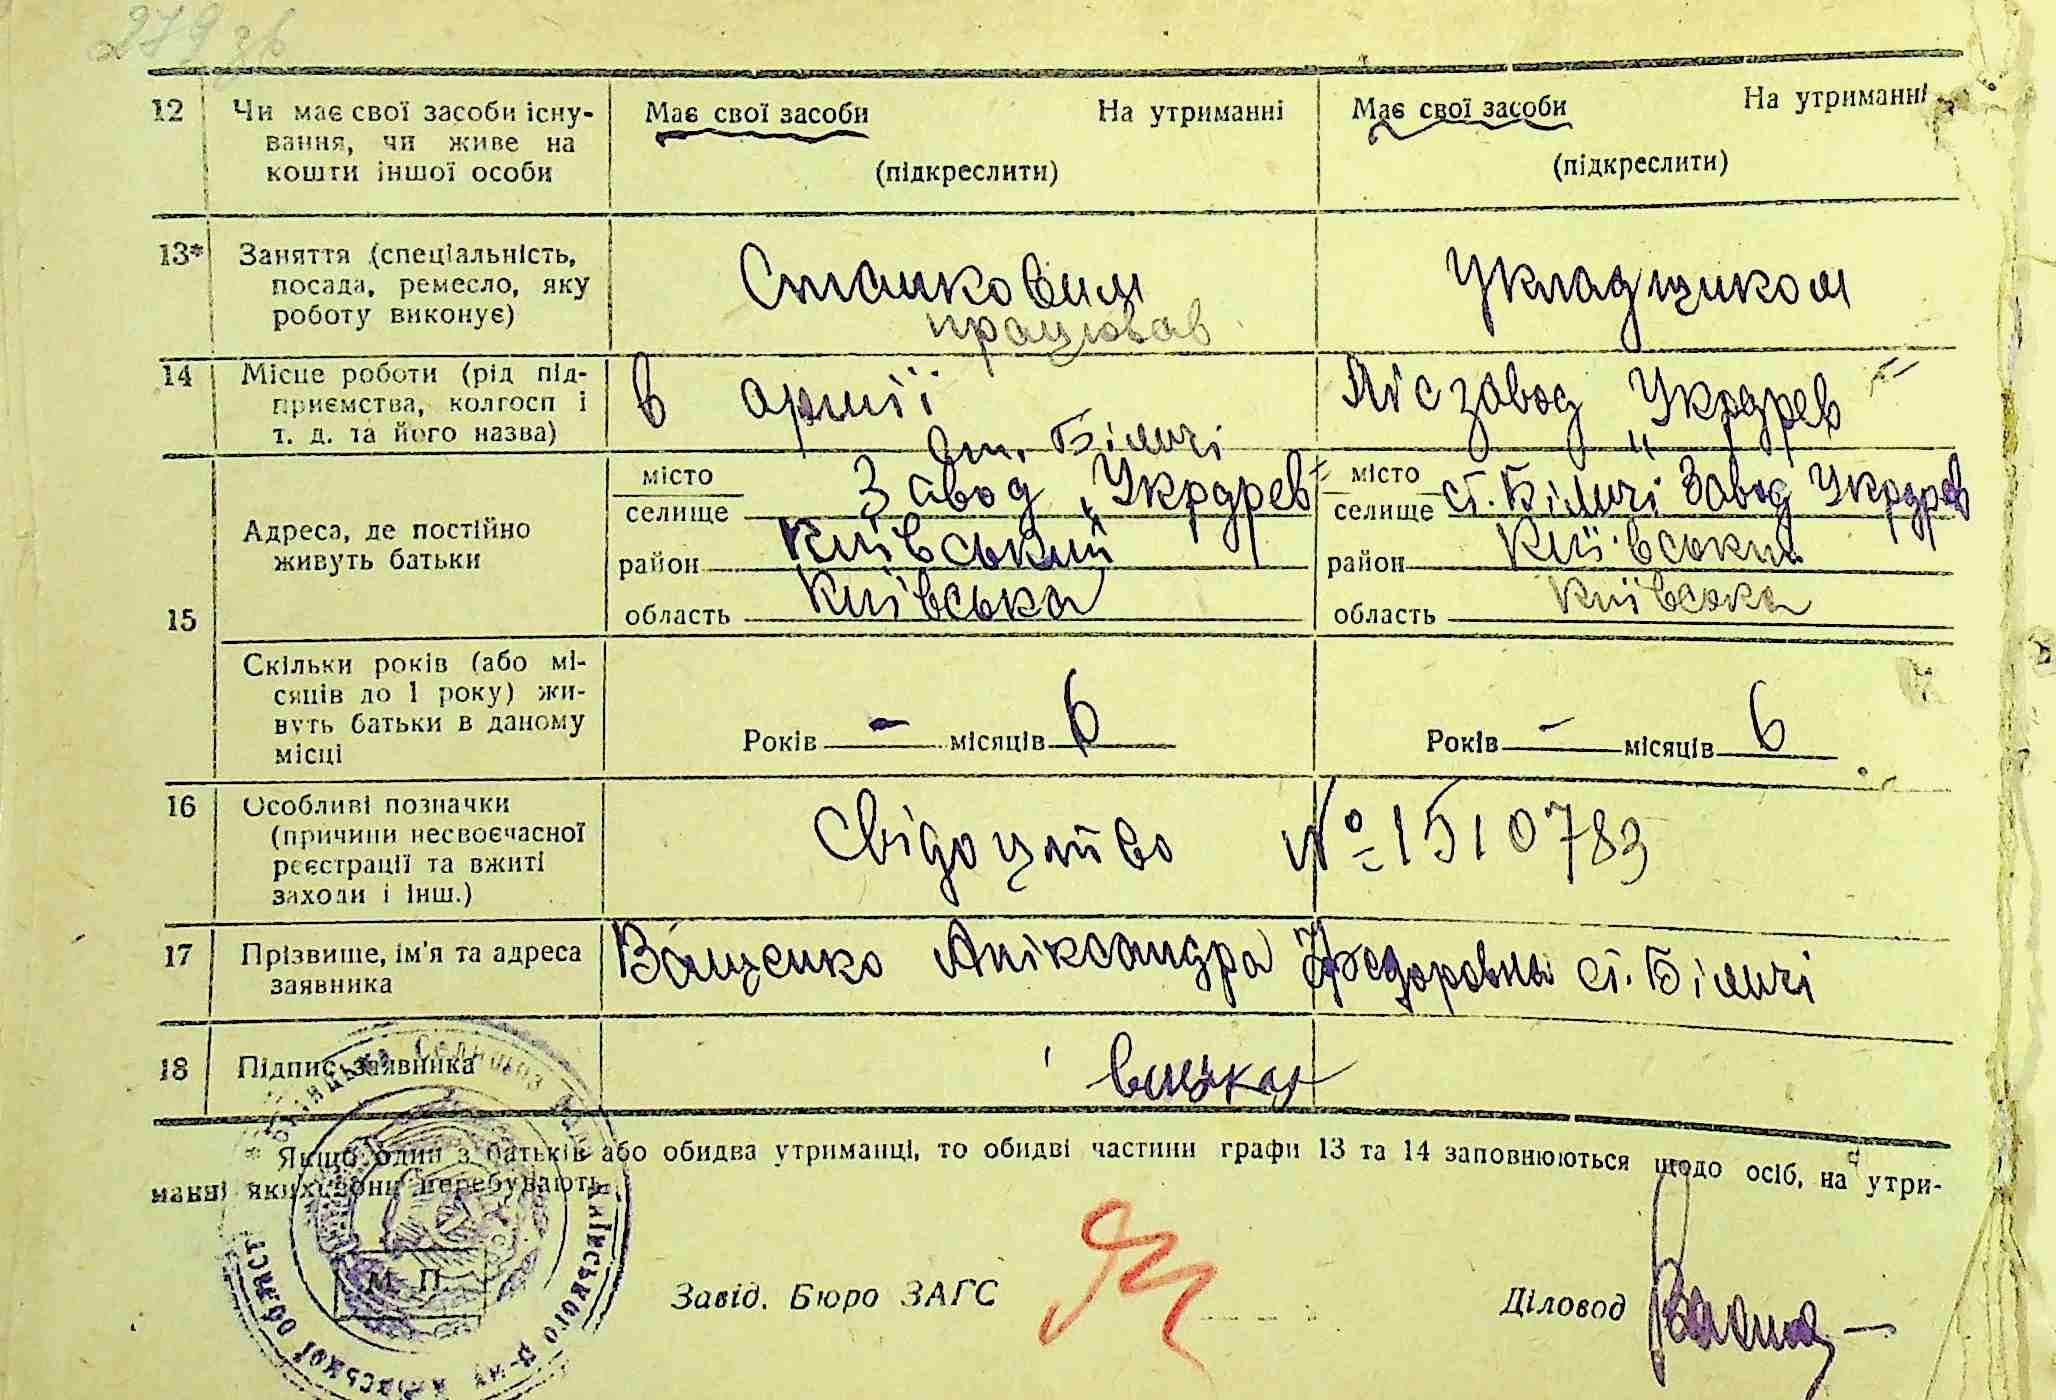 279 зв
12 Чи має свої засоби існу- Має свої засоби На утриманні Має свої засоби На утриманні
вання, чи живе на
кошти іншої особи (підкреслити) (підкреслити)
13* Заняття (спеціальність,
посада, ремесло, яку Станковим Укладщиком
роботу виконує) працював
14 Місце роботи (рід під- в армії Лісзавод „Укрдрев"
приємства, колгосп і
т. д. та його назва) ст. Біличі
місто Завод „Укрдрев" місто ст. Біличі Завод Укрдрев
селище селище
Адреса, де постійно
живуть батьки район Київський район Київський
15 область Київська область Київська
Скільки років (або мі-
сяців до 1 року) жи-
вуть батьки в даному Років – місяців 6 Років – місяців 6
місці
16 Особливі позначки
(причини несвоєчасної Свідоцтво № 1510783
реєстрації та вжиті
заходи і інш.)
17 Прізвише, ім'я та адреса Ващенко Аліксандра Федоровна ст. Біличі
заявника
18 Підпис заявника
Якщо один з батьків або обидва утриманці, то обидві частини графи 13 та 14 заповнюються щодо осіб, на утри-
манні яких вони перебувають.
М. П.
Завід. Бюро ЗАГС Діловод